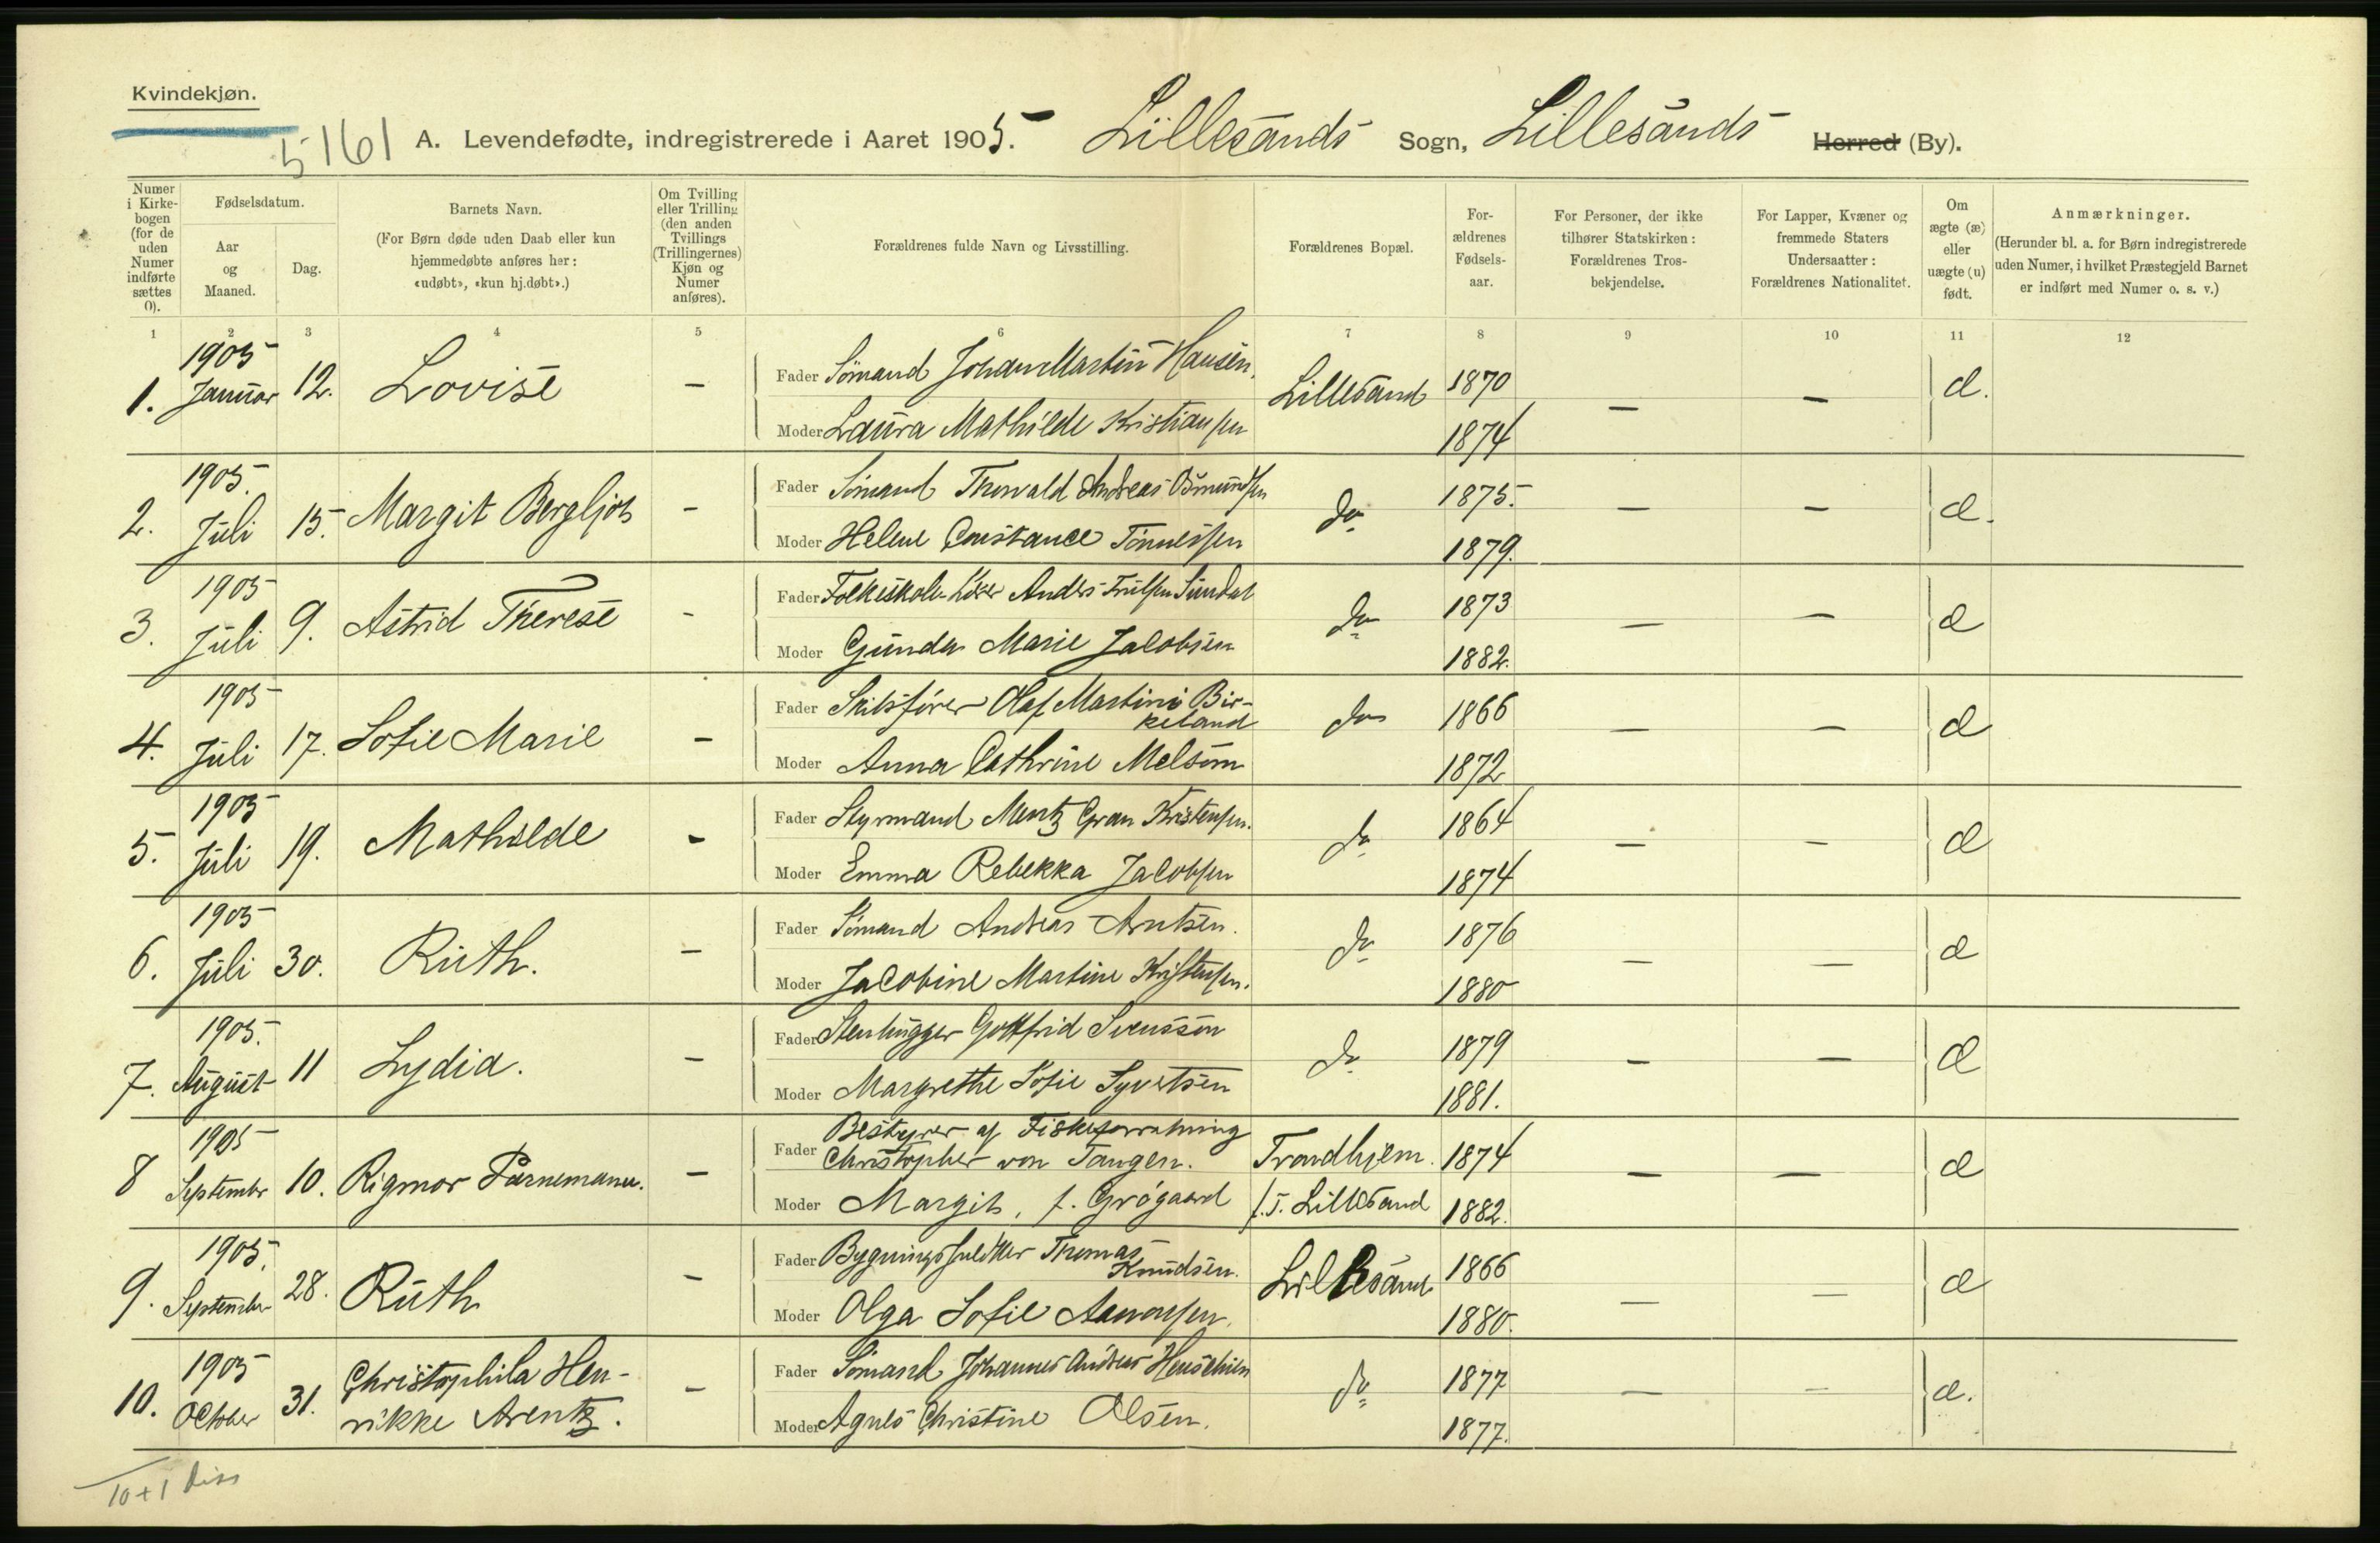 Kvindekjøn.
5161 A. Levendefødte, indregistrerede i Aaret 1905. Lillesands Sogn, Lillesands Herred (By).
Numer i Kirkebogen (for de uden Numer indførte sættes 0).
Fødselsdatum.
Aar og Maaned.
Dag.
Barnets Navn.
(For Børn døde uden Daab eller kun hjemmedøbte anføres her: «udøbt», «kun hj.døbt».)
Om Tvilling eller Trilling (den anden Tvillings (Trillingernes) Kjøn og Numer anføres).
Forældrenes fulde Navn og Livsstilling.
Forældrenes Bopæl.
For-ældrenes Fødsels-aar.
For Personer, der ikke tilhører Statskirken: Forældrenes Tros-bekjendelse.
For Lapper, Kvæner og fremmede Staters Undersaatter: Forældrenes Nationalitet.
Om ægte (æ) eller uægte (u) født.
Anmærkninger.
(Herunder bl. a. for Børn indregistrerede uden Numer, i hvilket Præstegjeld Barnet er indført med Numer o. s. v.)
1 2 3 4 5 6 7 8 9 10 11 12
1. 1905 Januar 12. Lovise - Fader Sømand Johan Martin Hansen. Lillesand 1870 - - æ.
Moder Laura Mathilde Kristiansen 1874
2. 1905. Juli 15. Margit Bergljot - Fader Sømand Thorvald Andreas Osmundsen do 1875. - - æ.
Moder Helene Constance Tønnessen 1879.
3. 1905 Juli 9. Astrid Therese - Fader Folkeskole-Lærer Anders Trulsen Sundal do 1873 - - æ
Moder Gunda Marie Jacobsen 1882.
4. 1905 Juli 17. Sofie Marie - Fader Skibsfører Olaf Martini Bir-
keland do 1866 - - æ
Moder Anna Cathrine Melsom 1872
5. 1905 Juli 19. Mathilde - Fader Styrmand Mentz Gran Kristensen. do 1864 - - æ
Moder Emma Rebekka Jacobsen 1874
6. 1905 Juli 30. Ruth. - Fader Sømand Andreas Arntsen. do 1876 - - æ
Moder Jacobine Martine Kristensen. 1880
7. 1905. August 11 Lydia. - Fader Stenhugger Gottfrid Svensson do 1879 - - æ
Moder Margrethe Sofie Syvertsen 1881.
8 1905 September 10. Rigmor - Fader Bestyrer af Fiskeforretning
Christopher von Tangen. Trondhjem. 1874 - - æ
Moder Margit, f. Grøgaard f.T. Lillesand 1882.
9. 1905. September 28. Ruth - Fader Thomas
Knudsen. Lillesand 1866 - - æ
Moder Olga Sofie Aanonsen. 1880.
10. 1905 October 31. Christophila Hen-
rikke Arentz. - Fader Sømand Johannes Andreas do 1877 - - æ.
Moder Agnes Christine Olsen. 1877.
10 + 1 diss